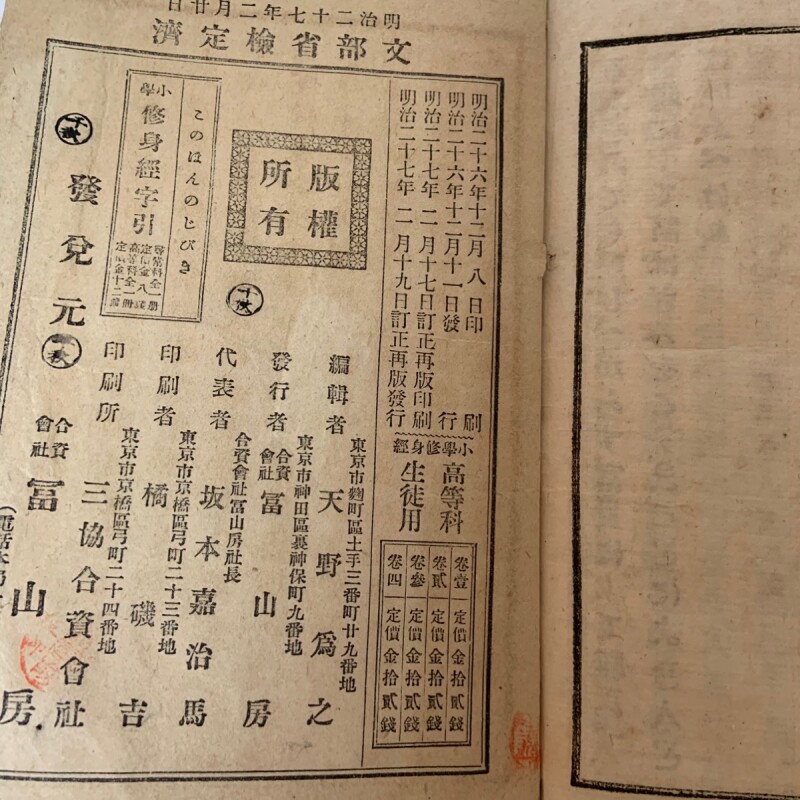 明治二十七年二月廿日
文部省檢定濟
明治二十六年十二月八日印刷
明治二十六年十二月十一日發行
明治二十七年二月十七日訂正再版印刷
明治二十七年二月十九日訂正再版發行
小學修身經
高等科
生徒用
卷壹 定價金拾貳錢
卷貳 定價金拾貳錢
卷參 定價金拾貳錢
卷四 定價金拾貳錢
版權
所有
このほんのじびき
小學
修身經字引
尋常科全一册
定價金八錢
高等科全一册
定價金十二錢
編輯者
東京市麴町區土手三番町廿九番地
天野爲之
發行者
東京市神田區裏神保町九番地
合資
會社
冨山房
代表者
合資會社冨山房社長
坂本嘉治馬
印刷者
東京市京橋區弓町二十三番地
橘磯吉
印刷所
東京市京橋區弓町二十四番地
三協合資會社
發兌元
合資
會社
冨山房